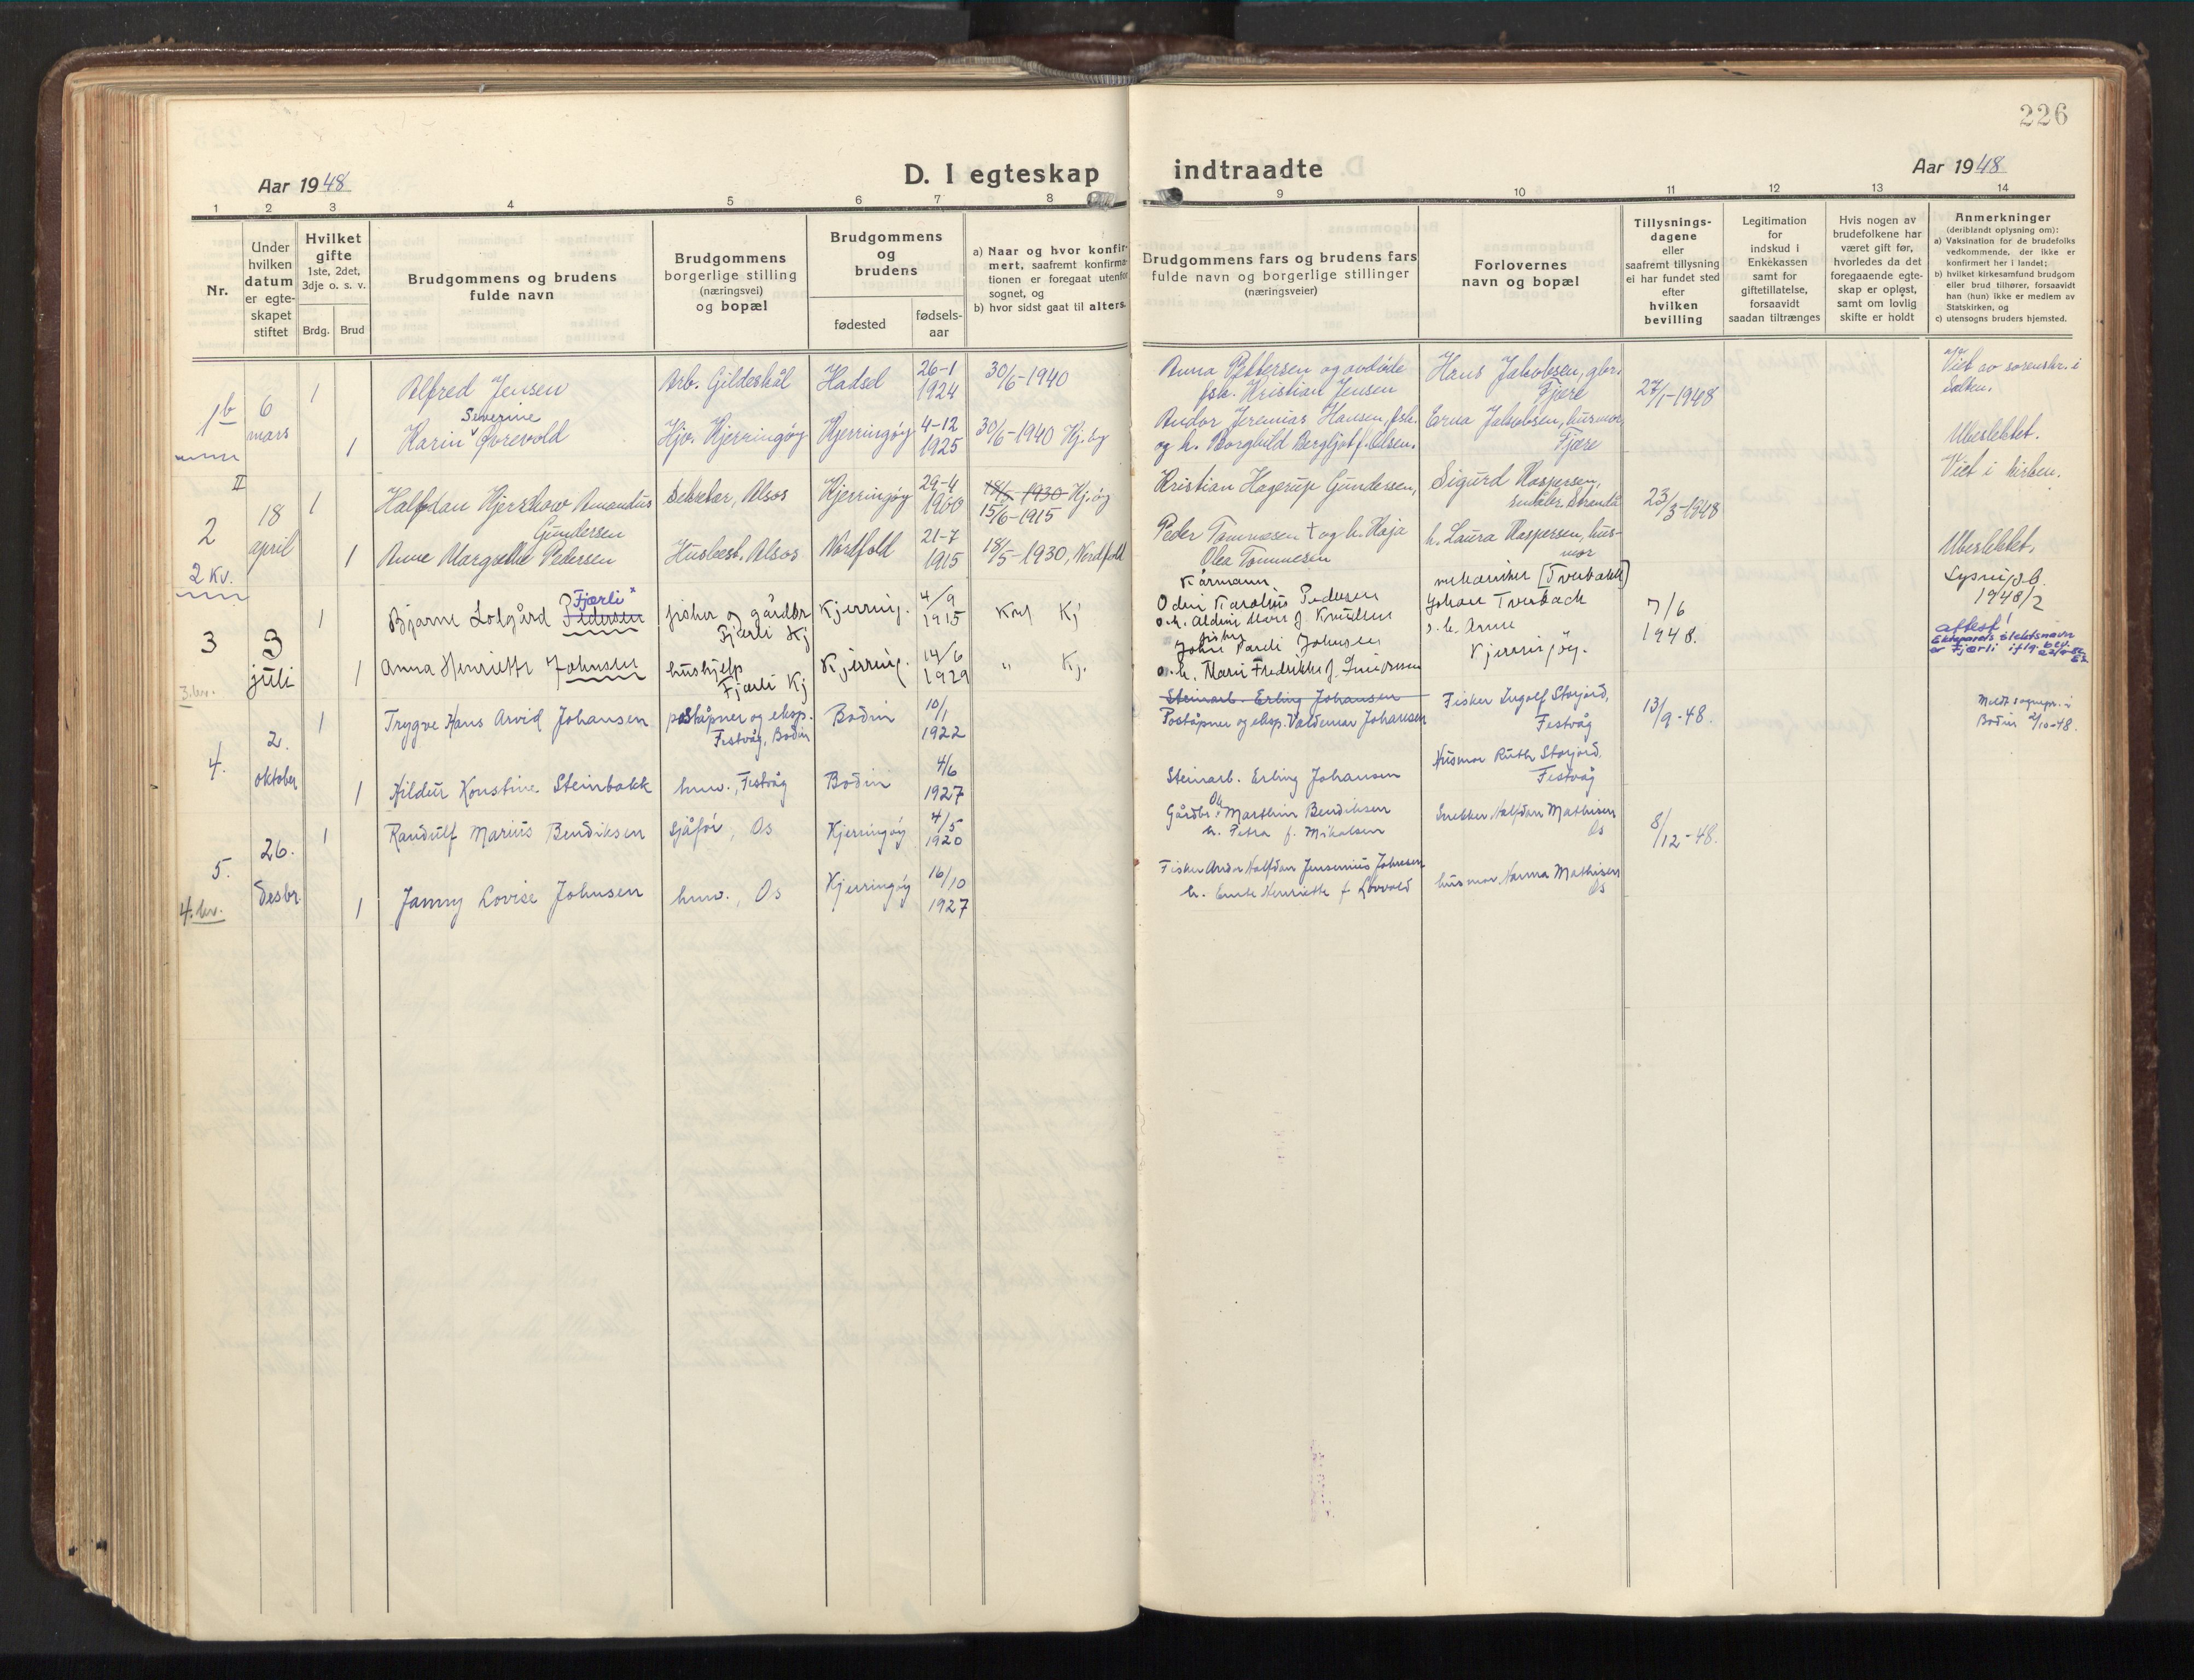 226
Aar 1948
D. I egteskap indtraadte
Aar 1948
1 2 3 4 5 6 7 8 9 10 11 12 13 14
Nr.
Under hvilken datum er egteskapet stiftet
Hvilket gifte
1ste, 2det, 3dje o. s. v.
Brdg. Brud
Brudgommens og brudens fulde navn
Brudgommens borgerlige stilling (næringsvei) og bopæl
Brudgommens og brudens
fødested
fødsels-aar
a) Naar og hvor konfirmert, saafremt konfirmationen er foregaat utenfor sognet, og
b) hvor sidst gaat til alters.
Brudgommens fars og brudens fars fulde navn og borgerlige stillinger (næringsveier)
Forlovernes navn og bopæl
Tillysnings-dagene eller saafremt tillysning ei har fundet sted efter hvilken bevilling
Legitimation for indskud i Enkekassen samt for giftetillatelse, forsaavidt saadan tiltrænges
Hvis nogen av brudefolkene har været gift før, hvorledes da det foregaaende egteskap er opløst, samt om lovlig skifte er holdt
Anmerkninger
(deriblandt oplysning om):
a) Vaksination for de brudefolks vedkommende, der ikke er konfirmert her i landet;
b) hvilket kirkesamfund brudgom eller brud tilhører, forsaavidt han (hun) ikke er medlem av Statskirken, og
c) utensogns bruders hjemsted.
1b 6 mars
1 Alfred Jensen Arb. Gildeskål Hadsel 26-1 1924 30/6-1940
Anna Pettersen og avdøde fsk. Kristian Jensen
Hans Jakobsen, gbr. Fjære
27/1-1948
Viet av sorenskr. i Salten.
1 Karin Severine Øvrevold Hjv. Kjerringøy Kjerringøy 4-12 1925 30/6-1940 Kj.øy
Andor Jeremias Hansen, fsk. og h. Borghild Bergljot f. Olsen.
Erna Jakobsen, husmor, Fjære
Ubeslektet.
II
2 18 april
1 Halfdan Kjerschow Amandus Gundersen Sekretær, Alsos Kjerringøy 29-4 1900 18/5-1930 Kj.øy 15/6-1915
Kristian Hagerup Gundersen,
Sigurd Kaspersen,
23/3-1948
Viet i kirken.
1 Anne Margrethe Pedersen Husbest. Alsos Nordfold 21-7 1915 18/5-1930, Nordfold
Peder Tommesen † og h. Kaja Olea Tommesen
h. Laura Kaspersen, husmor
Ubeslektet.
2 kv.
3 3 juli
1 Bjarne Lolgård Pedersen Fjærli fisker og gårdbr Fjærli Kj Kjerring. 4/9 1915 Kj
Kårmann Odin Karolius Pedersen o.h. Aldine f. Knudsen
mekaniker [Tverbakk] Johan Tverback o.h. Anne Kjerringøy.
7/6 1948.
Lysning 1948/2
attest!
Ekteparets slektsnavn er Fjærli iflg. bev.
1 Anna Henriette Johnsen hushjelp Fjærli Kj Kjerring. 14/6 1929 " Kj.
fisker John Pareli Johnsen
o.h. Marie Fredrikke f.
3. kv.
4. 2. oktober
1 Trygve Hans Arvid Johansen poståpner og eksp. Festvåg, Bodin Bodin 10/1 1922
Steinarb. Erling Johansen
Poståpner og eksp. Valdemar Johansen
Fisker Ingolf Storjord, Festvåg
13/9-48.
Meldt sognepr. i Bodin 2/10-48.
1 Hildur Konstine Steinbakk hmv., Festvåg Bodin 4/6 1927
Steinarb. Erling Johansen
Husmor Ruth Storjord, Festvåg
5. 26. desbr.
1 Randulf Marius Bendiksen sjåfør, Os Kjerringøy 4/5 1920
Gårdbr. Ole Marthin Bendiksen
h. Petra f. Mikalsen
Snekker Halfdan Mathisen Os
8/12-48.
1 Janny Lovise Johnsen hmv., Os Kjerringøy 16/10 1927
Fisker Andor Halfdan Jensenius Johnsen
h. Emte Henriette f. Løvvold
husmor Norma Mathisen Os
4. kv.